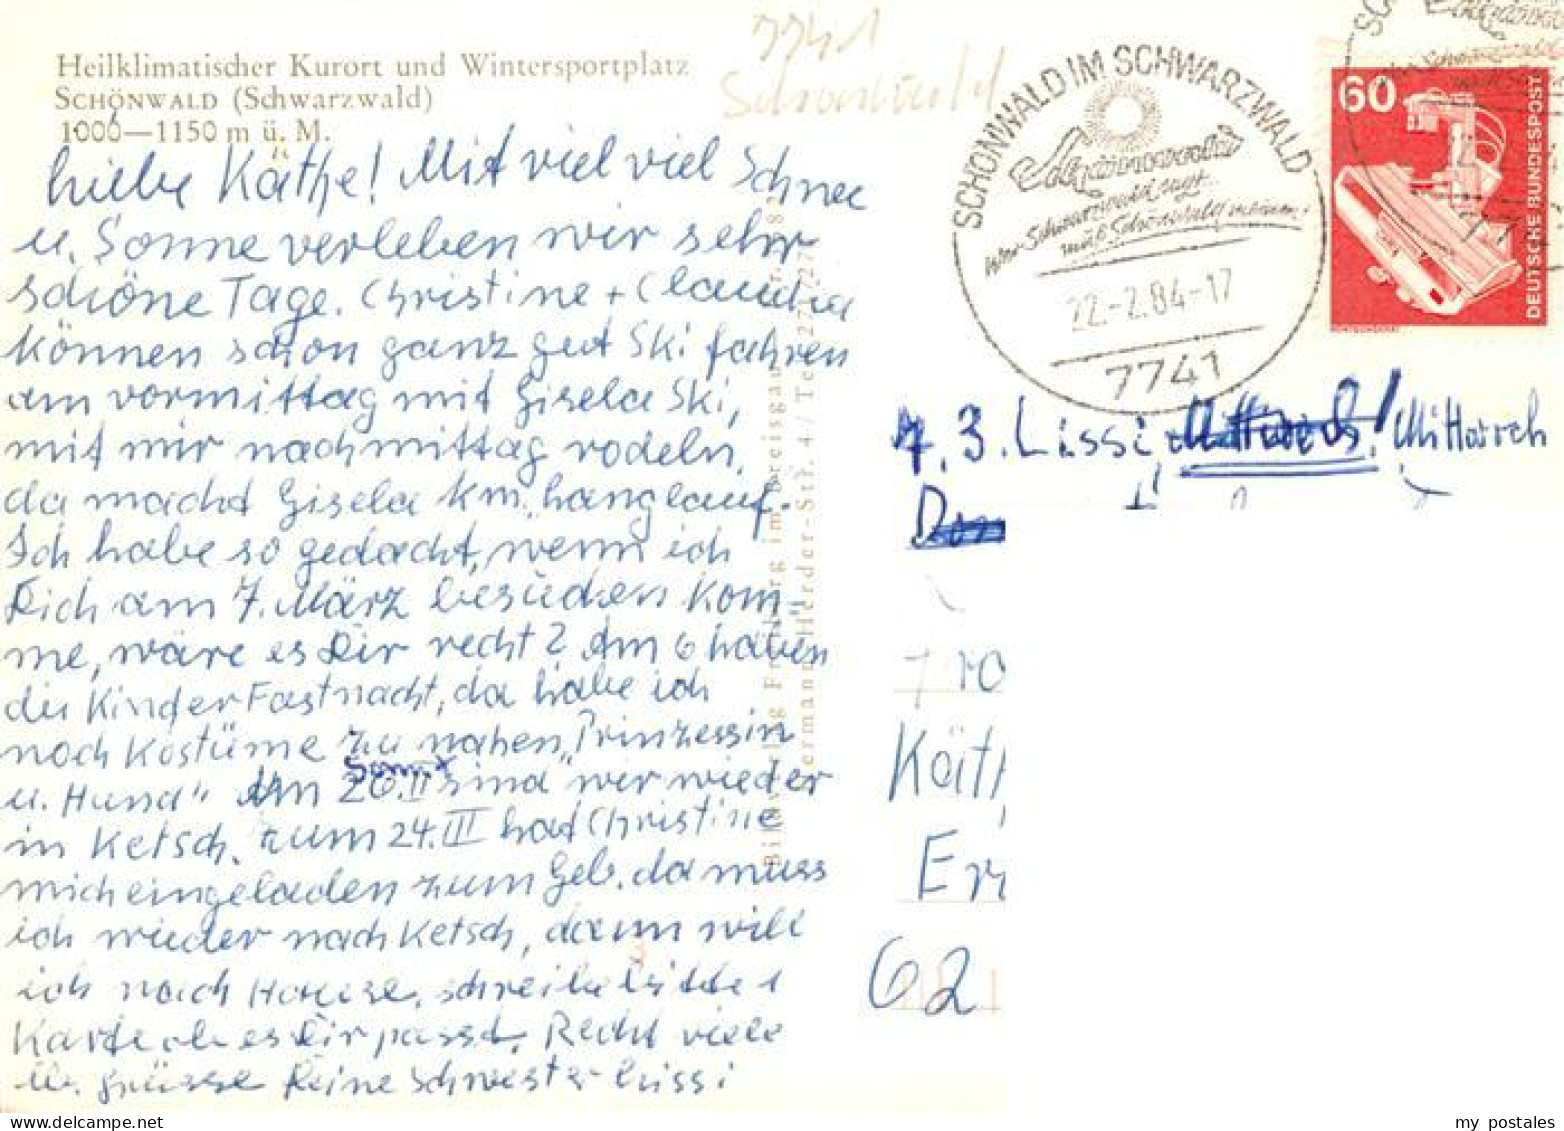 7741
Schönwald
Heilklimatischer Kurort und Wintersportplatz
SCHÖNWALD (Schwarzwald)
1000—1150 m ü. M.
liebe Käthe! Mit viel viel Schnee
u. Sonne verleben wir sehr
schöne Tage. Christine + Claudia
können schon ganz gut Ski fahren
am vormittag mit Gisela Ski,
mit mir nachmittag rodeln,
da macht Gisela km. langlauf.
Ich habe so gedacht, wenn ich
Dich am 7. März besuchen kom-
me, wäre es Dir recht? Am 6 haben
die Kinder Fastnacht, da habe ich
noch Kostüme zu nähen, "Prinzessin
u. Hund" Am 26.II sind wir wieder
in Ketsch. zum 24.III hat Christine
mich eingeladen zum Geb. da muss
ich wieder nach Ketsch, dann will
ich nach Hause. schreibe bitte 1
Karte ob es Dir passt. Recht viele
lb. grüsse Deine Schwester Lissi
SCHÖNWALD IM SCHWARZWALD
Schönwald
wer Schwarzwald sagt...
muß Schönwald meinen!
22.-2.84-17
7741
60
DEUTSCHE BUNDESPOST
7.3. Lissi Mittwoch
Don
Käth
Er
62
my postales